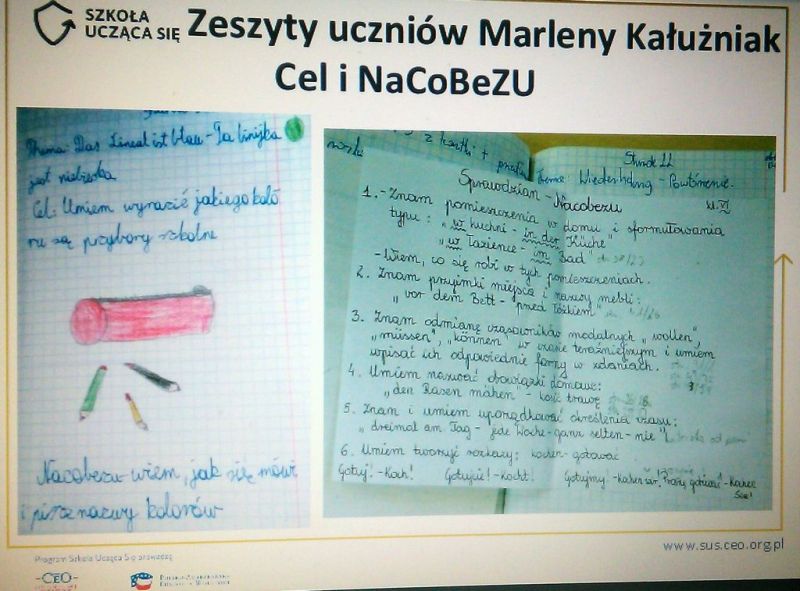 SZKOŁA
UCZĄCA SIĘ
Zeszyty uczniów Marleny Kałużniak
Cel i NaCoBeZU
Thema: Das Lineal ist blau - Ta linijka
jest niebieska
Cel: Umiem wyrazić jakiego kolo
ru są przybory szkolne
Nacobezu: wiem, jak się mówi
i pisze nazwy kolorów
z kartki +
Stunde 22
Thema: Wiederholung - Powtórzenie.
Sprawdzian - Nacobezu
kl. VI
1. - Znam pomieszczenia w domu i sformułowania
typu: „w kuchni - in der Küche"
„w łazience - im Bad"
- Wiem, co się robi w tych pomieszczeniach.
2. Znam przyimki miejsca i nazwy mebli:
„vor dem Bett - przed łóżkiem"
3. Znam odmianę czasowników modalnych „wollen",
„müssen", „können" w czasie teraźniejszym i umiem
wpisać ich odpowiednie formy w zdaniach.
4. Umiem nazywać obowiązki domowe:
„den Rasen mähen - kosić trawę
5. Znam i umiem uporządkować określenia czasu:
„dreimal am Tag - jede Woche - ganz selten - nie"
6. Umiem tworzyć rozkazy: kochen - gotować
Gotuj! - Koch! Gotujcie! - Kocht! Gotujmy! - Kochen wir!
www.sus.ceo.org.pl
Program Szkoła Ucząca Się prowadzą
-CEO-